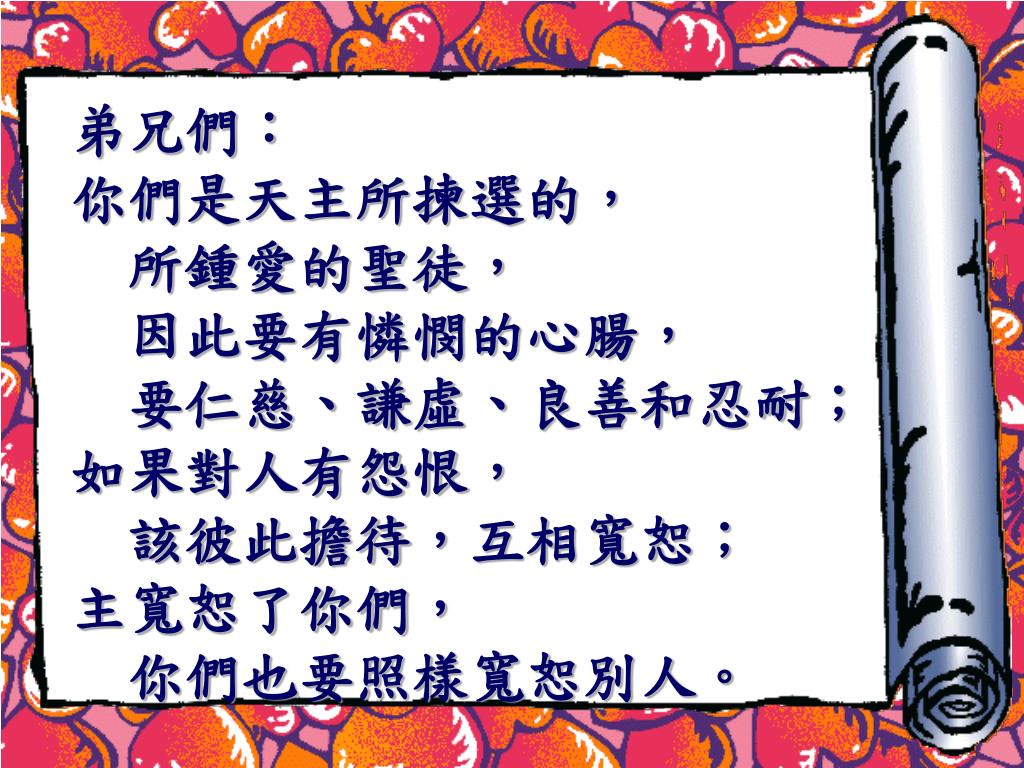 弟兄們：
你們是天主所揀選的，
所鍾愛的聖徒，
因此要有憐憫的心腸，
要仁慈、謙虛、良善和忍耐；
如果對人有怨恨，
該彼此擔待，互相寬恕；
主寬恕了你們，
你們也要照樣寬恕別人。